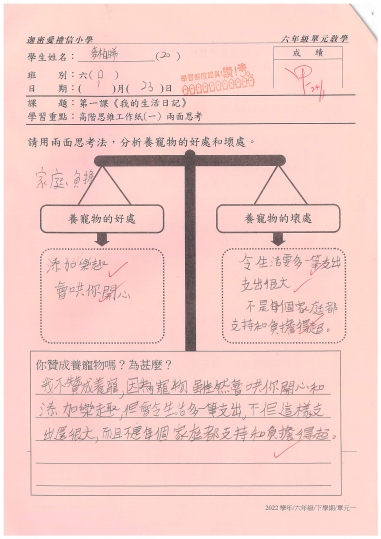 迦密愛禮信小學 六年級單元教學
學生姓名： (20) 成績
班別：六( )
日期：( )月( 23 )日
課題：第一課《我的生活日記》
學習重點：高階思維工作紙(一) 兩面思考
請用兩面思考法，分析養寵物的好處和壞處。
家庭負擔
養寵物的好處 養寵物的壞處
添加樂趣
會哄你開心
令生活要多一筆支出
支出很大
不是每個家庭都
支持和負擔得起。
你贊成養寵物嗎？為甚麼？
我不贊成養寵，因為寵物雖然會哄你開心和
添加樂趣，但會令生活多一筆支出，不但這樣支
出還很大，而且不是每個家庭都支持和負擔得起。
2022 學年/六年級/下學期/單元一